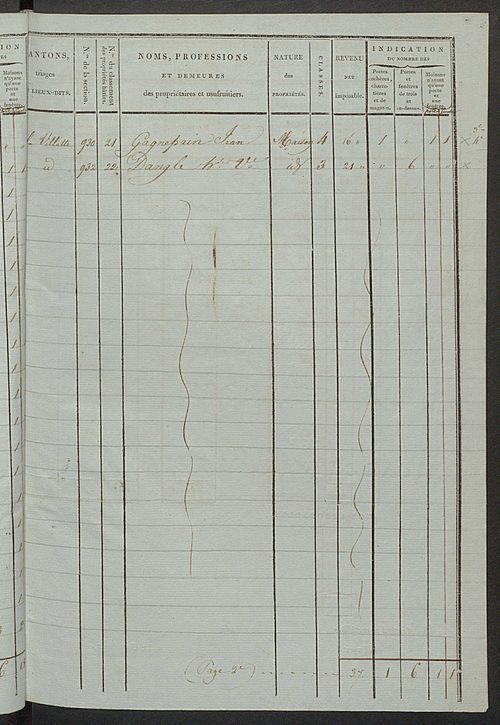 ION
Maisons n'ayant qu'une porte et une fenêtre.
ANTONS,
triages
LIEUX-DITS.
N.os de la section.
N.os du classement des propriétés bâties.
NOMS, PROFESSIONS
ET DEMEURES
des propriétaires et usufruitiers.
NATURE
des
PROPRIÉTÉS.
CLASSES.
REVENU
NET
imposable.
INDICATION
DU NOMBRE DES
Portes cochères, charretières et de magasin.
Portes et fenêtres de trois et au-dessus.
Maisons n'ayant qu'une porte et une fenêtre.
Villette 930 21 Gagnepain Jean Maison 4 16 1 1 1
id 932 22 Dangle Ve id 3 21 6
(Page 2e) 37 1 6 1 1